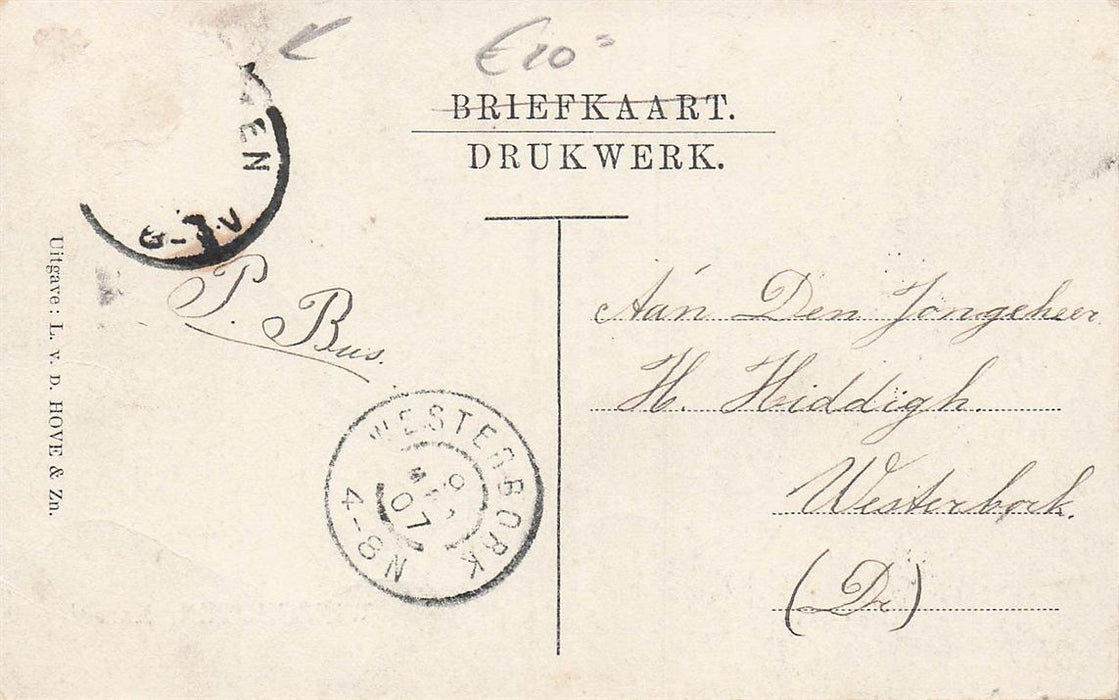 €10=
BRIEFKAART.
DRUKWERK.
EN
6-7.V
Uitgave: L. v. D. HOVE & Zn.
P. Bus.
WESTERBORK
9
07
4-8N
Aán Den Jongeheer
H. Hiddigh.
Westerbork.
(Dr)